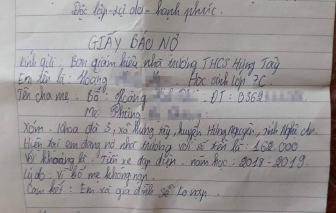 Độc lập - tự do - hạnh phúc.
GIẤY BÁO NỢ
Kính gửi: Ban giám hiệu nhà trường THCS Hưng Tây
Em tên là: Hoàng Học sinh lớp 7C
Tên cha mẹ. Bố: Hoàng ĐT: 0362
Mẹ: Phùng
Xóm: Khoa đà 3, xã Hưng Tây, huyện Hưng Nguyên, tỉnh Nghệ An
Hiện tại em đang nợ nhà trường với số tiền là: 162.000
Với khoản là: Tiền xe đạp điện. năm học: 2018-2019
Lý do: Vì bố mẹ không nạp.
Cam kết: Em và gia đình sẽ nạp.